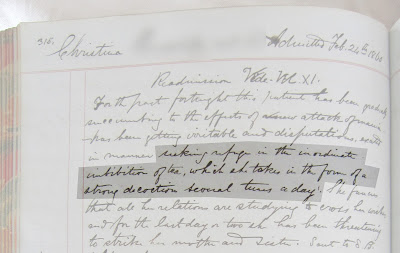 315.
Christina
Admitted Feb. 24th
Readmission Vide Vol. XI.
For the past fortnight this patient has been gradually
succumbing to the effects of attack of mania
-has been getting irritable and disputatious,
in manner seeking refuge in the inordinate
imbibition of tea, which she takes in the form of a
strong decoction several times a day. She fancies
that all her relations are studying to cross her wishes,
and for the last day or two she has been threatening
to strike her mother and sister. Sent to